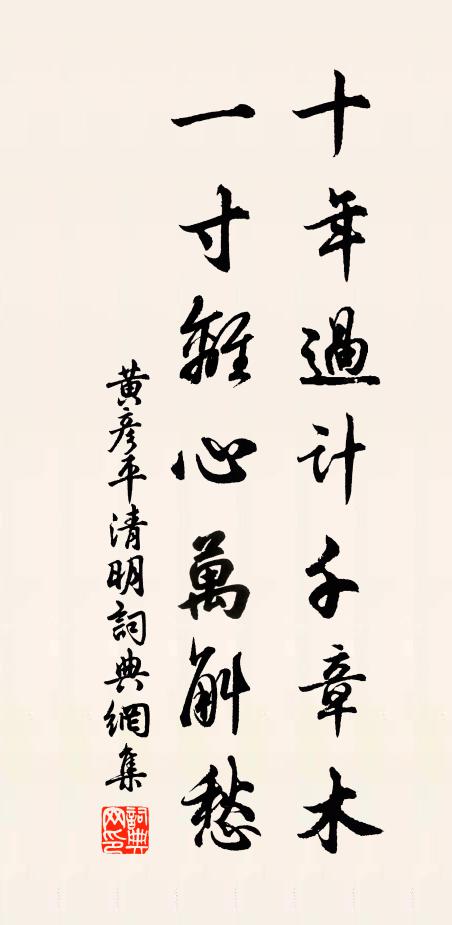 十年過計千章木
一寸離心萬斛愁
黃彥平清明詞典網集
詞典網印